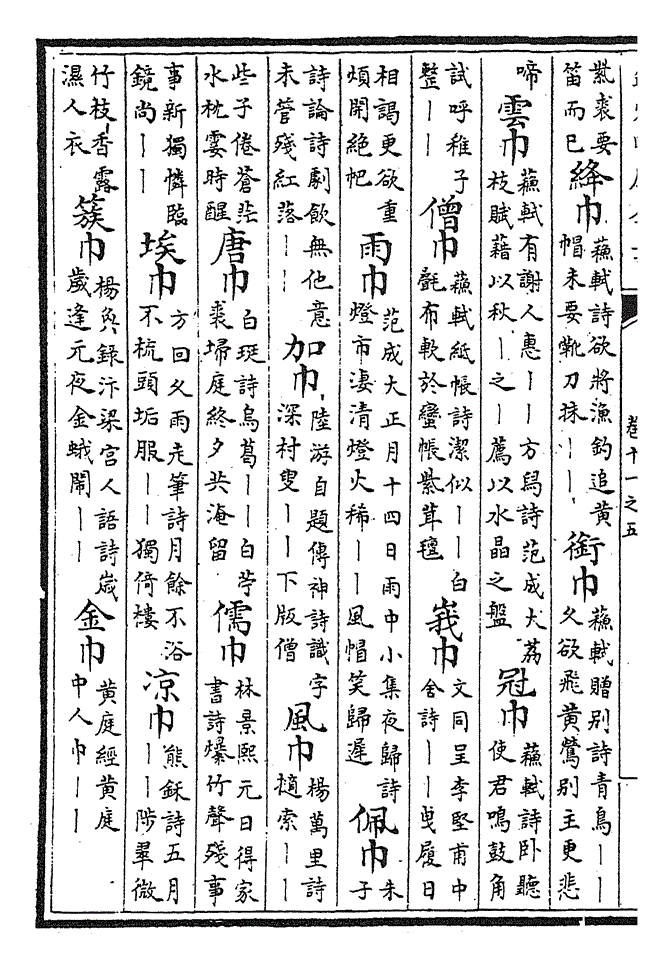 紫裘要笛而已 絳巾 蘇軾詩欲將漁釣追黃帽未要靴刀抹｜｜ 銜巾 蘇軾贈別詩青鳥｜｜久欲飛黃鶯別主更悲
啼 雲巾 蘇軾有謝人惠｜｜方舄詩范成大荔枝賦藉以秋｜之｜薦以水晶之盤 冠巾 蘇軾詩卧聽使君鳴鼓角
試呼稚子整｜｜ 僧巾 蘇軾紙帳詩潔似｜｜白氎布軟於蠻帳紫茸氊 峩巾 文同呈李堅甫中舍詩｜｜曵履日
相謁更欲重煩開絕帊 雨巾 范成大正月十四日雨中小集夜歸詩燈市淒清燈火稀｜｜風帽笑歸遲 佩巾 朱子
詩論詩劇飲無他意未管殘紅落｜｜ 加巾 陸游自題傳神詩識字深村叟｜｜下版僧 風巾 楊萬里詩索｜｜
些子倦蒼茫水枕霎時醒 唐巾 白珽詩烏葛｜｜白苧裘埽庭終夕共淹留 儒巾 林景熙元日得家書詩爆竹聲殘事
事新獨憐臨鏡尚｜｜ 埃巾 方回久雨走筆詩月餘不浴不梳頭垢服｜｜獨倚樓 凉巾 熊鉌詩五月｜｜陟翠微
竹枝香露濕人衣 簇巾 楊奐錄汴梁宮人語詩歲歲逢元夜金蛾鬧｜｜ 金巾 黃庭經黃庭中人巾｜｜
卷十一之五